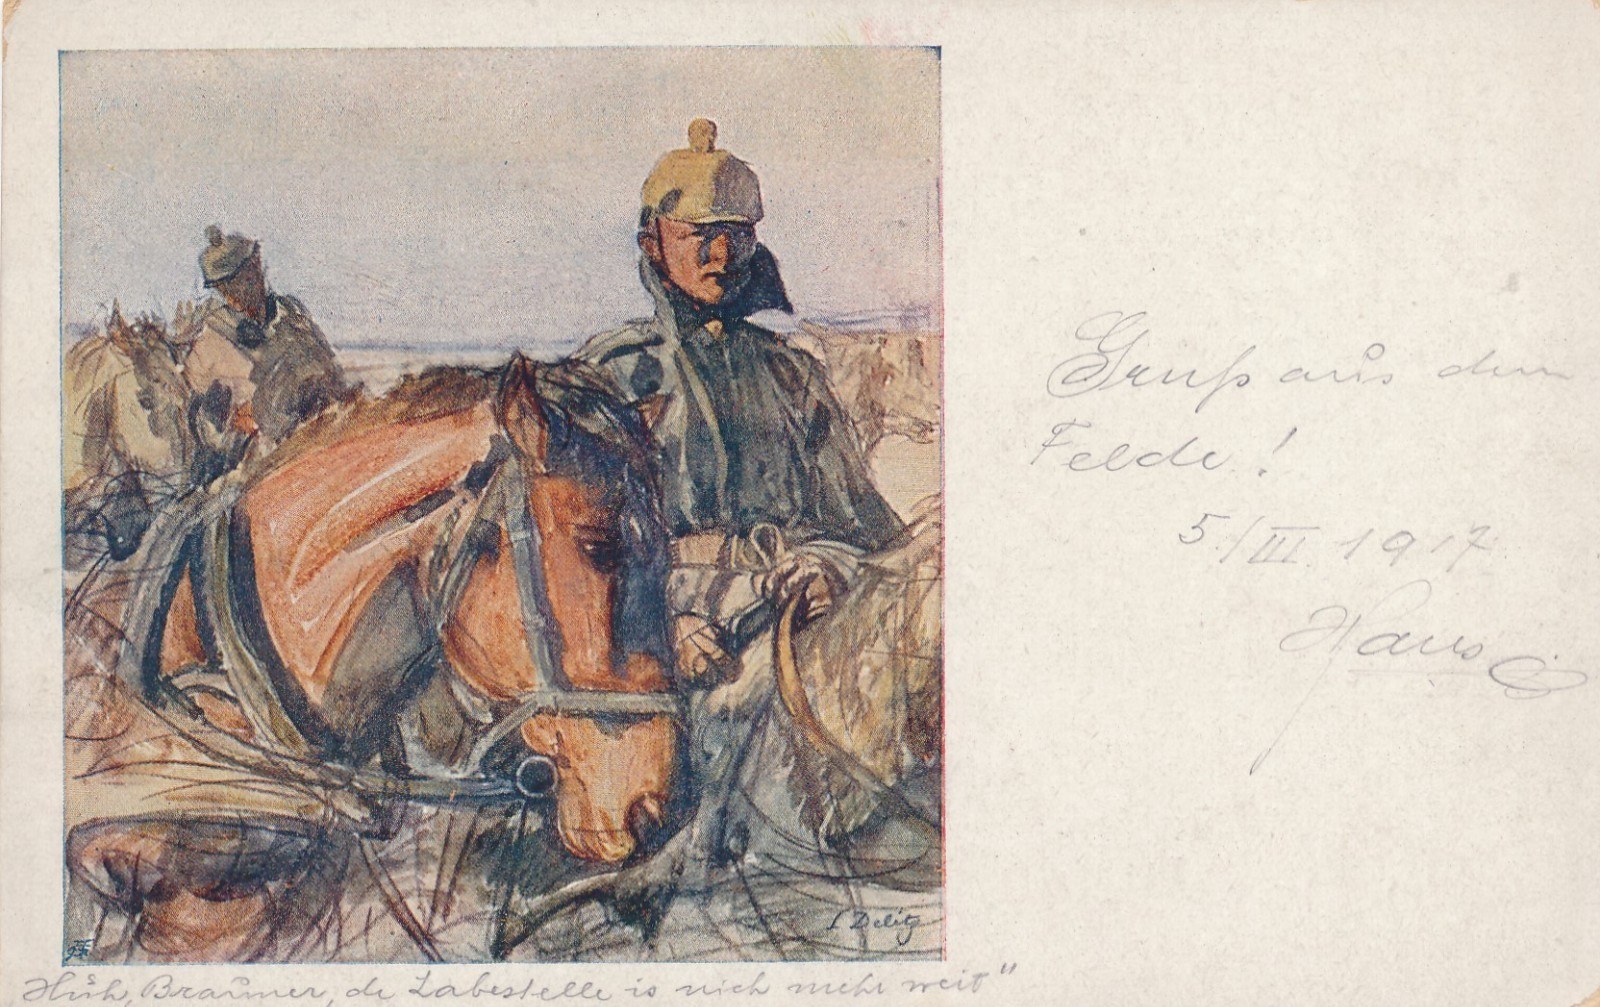 Gruß aus dem
Felde!
5./III. 1917
Hans
L Delitz
Hüh, Brauner, de Labestelle is nich mehr weit"